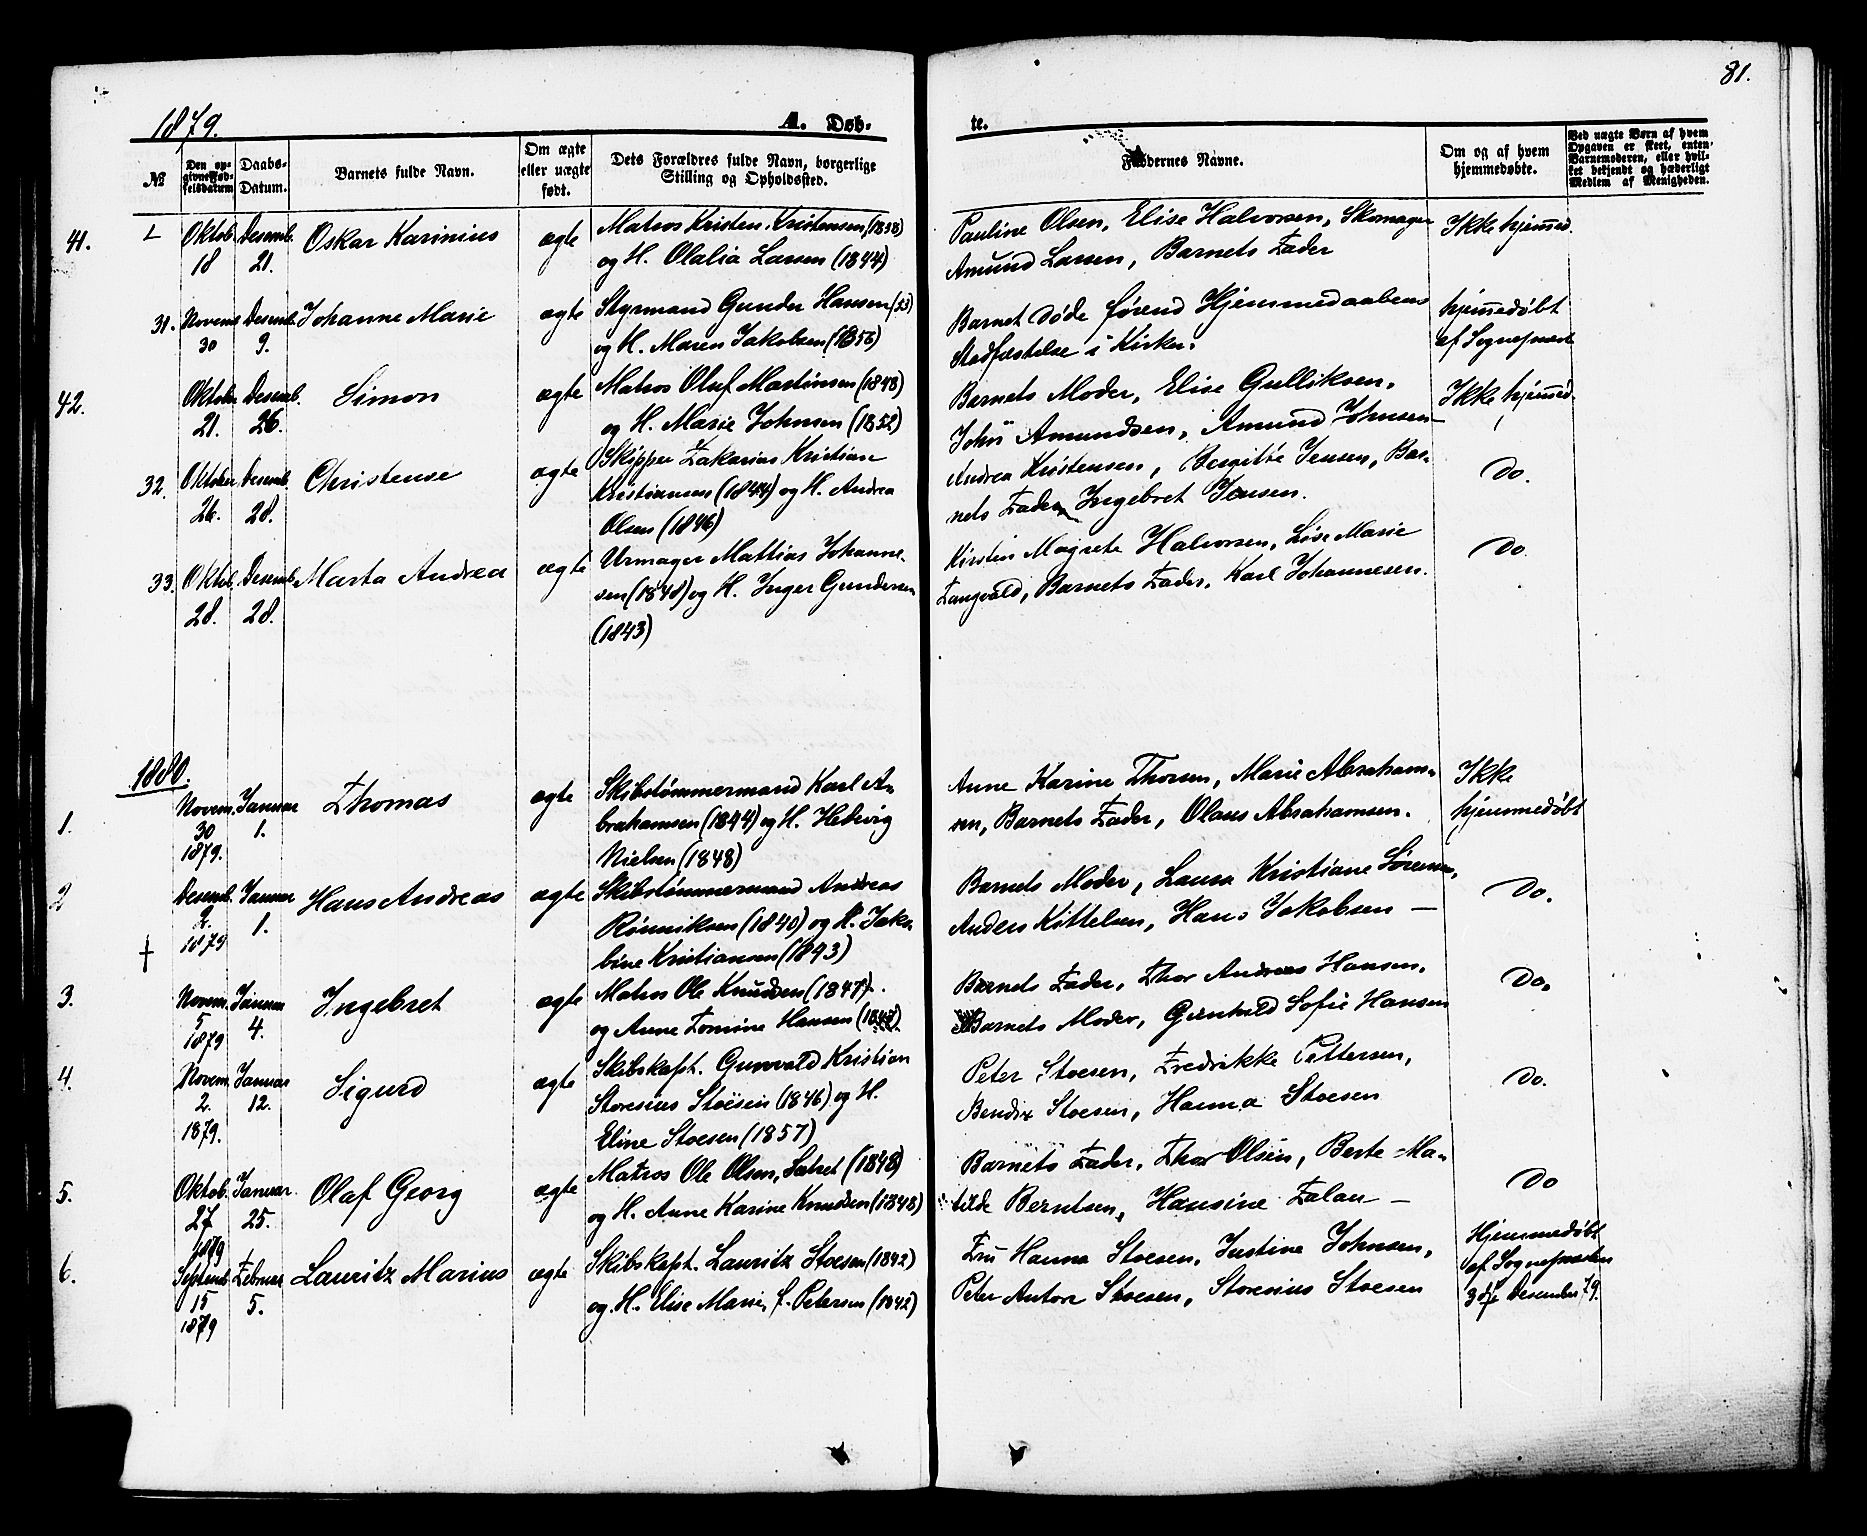 81.
1879.
A. Døb-
te.
№
Den op-
givne Fød-
selsdatum
Daabs-
Datum.
Barnets fulde Navn.
Om ægte
eller uægte
født.
Dets Forældres fulde Navn, borgerlige
Stilling og Opholdssted.
Faddernes Navne.
Om og af hvem
hjemmedøbte.
Ved uægte Børn af hvem
Opgaven er skeet, enten
Barnemoderen, eller hvil-
ket bekjendt og hæderligt
Medlem af Menigheden.
41.
Oktob.
18
Desemb.
21.
Oskar Karinius
ægte
Matros Kristen Kristensen (1838)
og H. Olalia Larsen (1844)
Pauline Olsen, Elise Halvorsen, Skomager
Amund Larsen, Barnets Fader
Ikke hjemmed.
31.
Novemb
30
Desemb.
9.
Johanne Marie
ægte
Styrmand Gunder Hansen (53)
og H. Maren Jakobsen (1856)
Barnet døde førend Hjemmedaabens
Stadfæstelse i Kirken.
hjemmedøbt
af Sognepræst
42.
Oktober
21.
Desemb.
26.
Simon
ægte
Matros Oluf Martinsen (1848)
og H. Marie Johnsen (1852)
Barnets Moder, Elise Gulliksen,
John Amundsen, Amund Johnsen
Ikke hjemmed.
32.
Oktober
26.
Desemb.
28.
Christense
ægte
Skipper Zakarias Kristian
Kristiansen (1844) og H. Andrea
Olsen (1846)
Andrea Kristensen, Bergitte Jensen, Bar-
nets Fader, Ingebret Jensen.
Do.
33.
Oktob.
28.
Desemb.
28.
Marta Andrea
ægte
Urmager Mattias Johanne-
sen (1848) og H. Inger Gundersen
(1843)
Kirstin Magrete Halvorsen, Lise Marie
Langvald, Barnets Fader, Karl Johannesen.
Do
1880.
1.
Novem.
30
1879.
Januar
1.
Thomas
ægte
Skibstømmermand Karl A-
brahamsen (1844) og H. Hedvig
Nielsen (1848)
Anne Karine Thorsen, Marie Abraham-
sen, Barnets Fader, Olaus Abrahamsen.
Ikke
hjemmedøbt
2
Desemb.
2.
1879
Januar
1.
Hans Andreas
ægte
Skibstømmermand Andreas
Rønniksen (1840) og H. Jako-
bine Kristiansen (1843)
Barnets Moder, Laura Kristiane Sørensen,
Anders Kittelsen, Hans Jakobsen —
Do.
3.
Novem.
5
1879
Januar
4.
Ingebret
ægte
Matros Ole Knudsen (1847)
og Anne Tomine Hansen
Barnets Fader, Thor Andreas Hansen,
Barnets Moder, Gunhild Sofie Hansen
Do.
4.
Novem.
2.
1879.
Januar
12.
Sigurd
ægte
Skibskapt. Gunvald Kristian
Storesius Stoesen (1846) og H.
Eline Stoesen (1857)
Peter Stoesen, Fredrikke Pettersen,
Bendix Stoesen, Hanna Stoesen
Do.
5.
Oktob.
27
1879
Januar.
25.
Olaf Georg
ægte
Matros Ole Olsen, Sætret (1848)
og H. Anne Karine Knudsen (1848)
Barnets Fader, Thor Olsen, Berte Ma-
tilde Berntsen, Hansine Falau —
Do
6.
Septemb.
15
1879
Februar
5.
Lauritz Marius
ægte
Skibskapt. Lauritz Stoesen (1842)
og H. Elise Marie, f. Petersen (1842)
Fru Hanna Stoesen, Justine Johnsen,
Peter Anton Stoesen, Storesius Stoesen
Hjemmedøbt
af Sognepræsten
3die Desember 79.